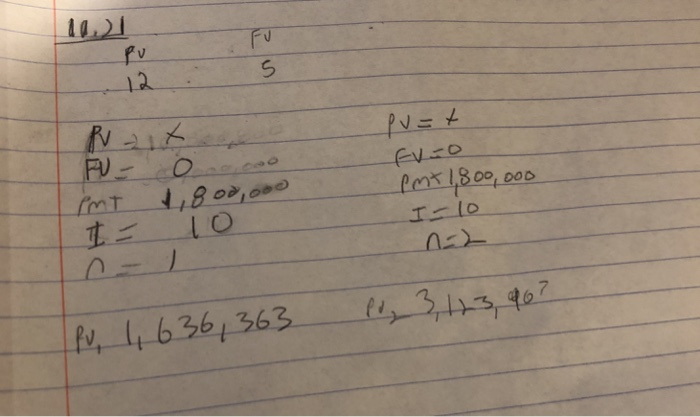 11.21
PV FV
12 5
PV = X
FV = 0
PMT 1,800,000
I = 10
n = 1
PV = X
FV = 0
PMT 1,800,000
I = 10
n = 2
PV₁ 1,636,363
PV₂ 3,123,967